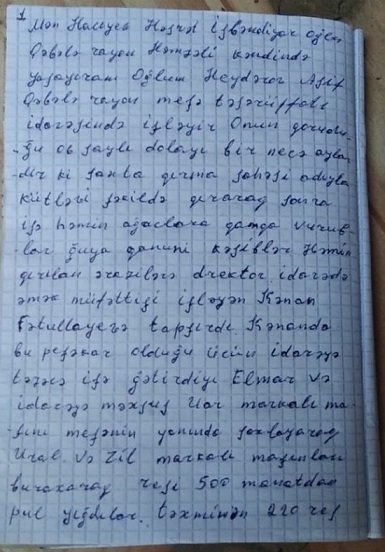 1
Mən Həsrət İsfəndiyar oğlu
Qəbələ rayon Həmzəli kəndində
yaşayıram Oğlum Heydərov Asif
Qəbələ rayon meşə təsərüffatı
idarəsində işləyir Onun qorudu-
-ğu 06 sayla dolayı bir neçə aylar
-dır ki şaxta qırma sahəsi adıyla
kütləvi şəkildə qıraraq sonra
isə həmin ağaclara damğa vurub-
lar ğuya qanuni kəsiblər Həmin
qırılan ərazilərə direktor idarədə
əmək müfəttişi işləyən Kənan
Fətullayevə tapşırdı Kənanda
bu peşəkar olduğu üçün idarəyə
təzəcə işə gətirdiyi Elmar və
idarəyə məxsus Uaz markalı ma-
şını meşənin yanında saxlayaraq
Ural və Zil markalı maşınları
buraxaraq reysi 500 manatdan
pul yığdılar. təxminən 220 reys